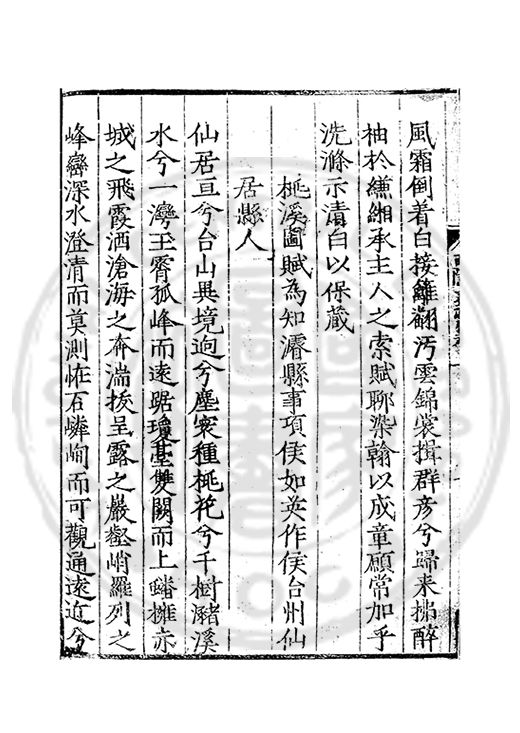 風霜倒着白接䍦翻汚雲錦裳揖群彦兮歸来拂醉
袖於縑緗承主人之索賦聊染翰以成章願常加乎
洗滌示潰白以保蔵
桃溪圖賦為知濬縣事項侯如英作侯台州仙
居縣人
仙居亘兮台山異境逈兮塵寰種桃花兮千樹瀦溪
水兮一灣玉霄孤峰而逺踞瓊臺雙闕而上蟠擁赤
城之飛霞洒滄海之奔湍挨呈露之巖壑峭羅列之
峰巒深水澄清而莫測恠石嶙峋而可觀通逺近兮